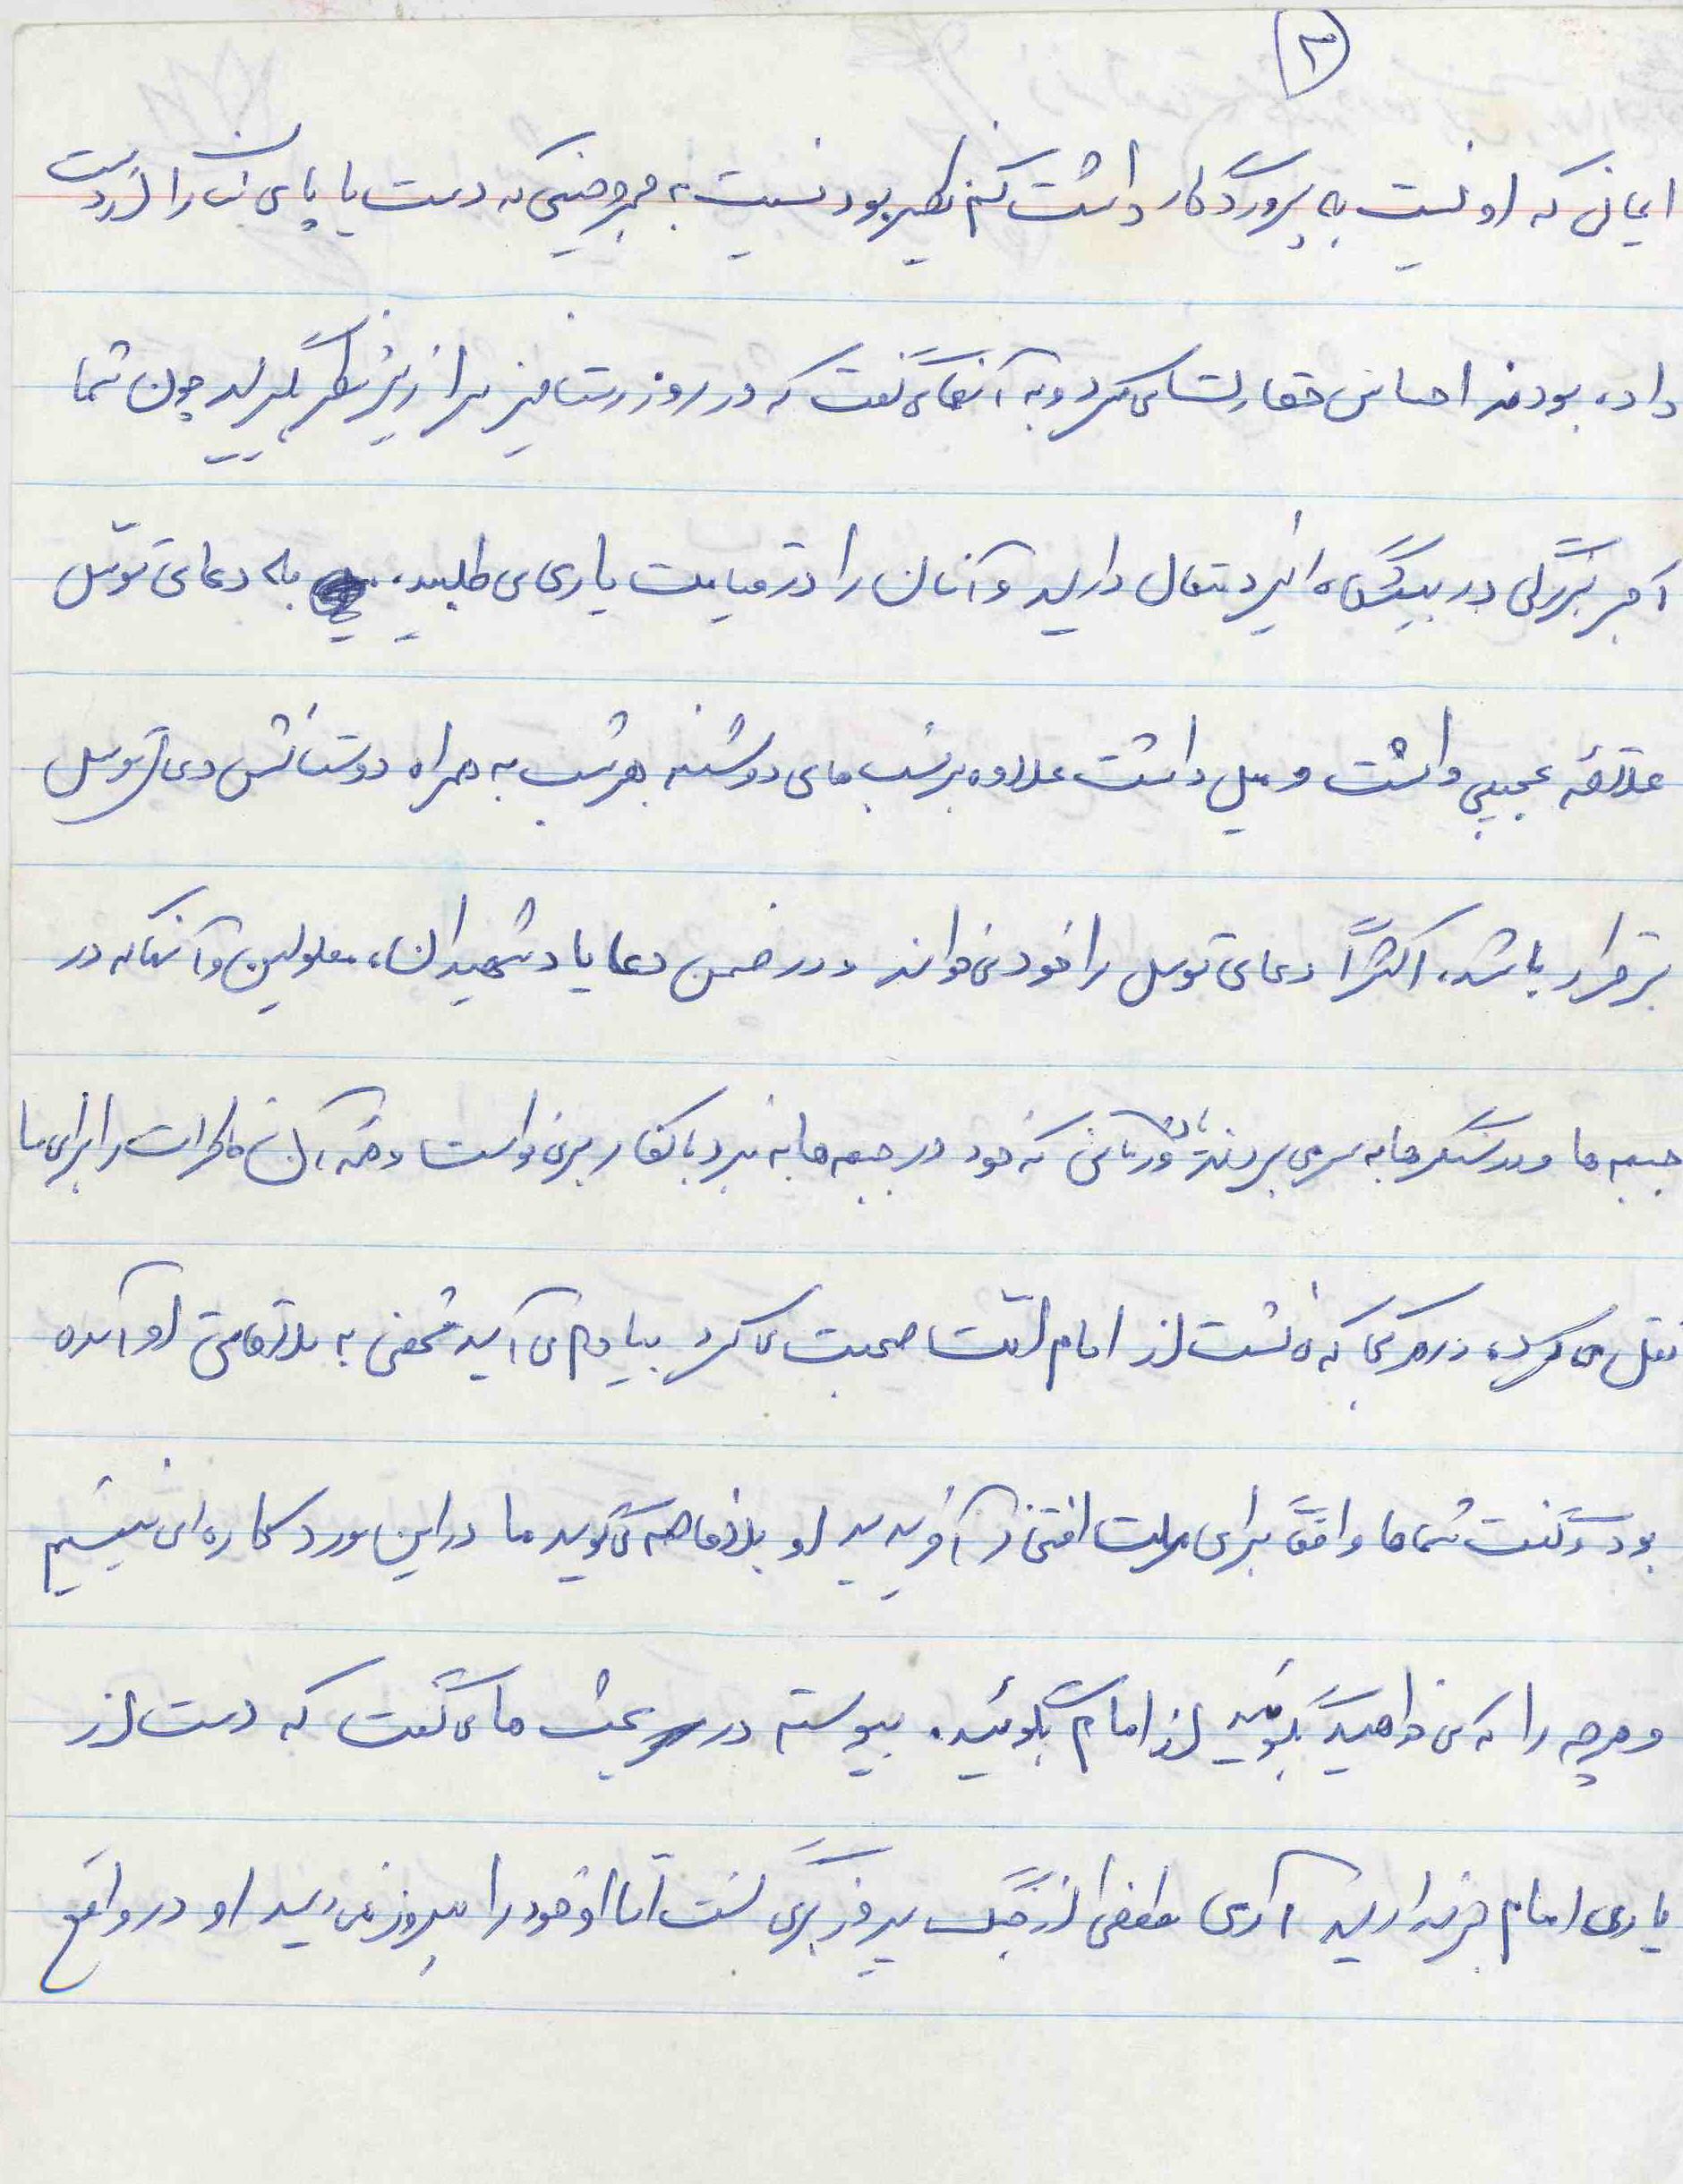 ۳
ایمانی که او نسبت به پروردگار داشت کم نظیر بود نسبت به مجروحینی که دست یا پای شان را از دست
داده بودند احساس حقارت می کرد و به آنها می گفت که در روز رستاخیز مرا زیر نظر بگیرید چون شما
اجر بزرگی در پیشگاه ایزد متعال دارید و آنان را در قیامت یاری می طلبید. به دعای توسل
علاقه عجیبی داشت و میل داشت علاوه بر شب های دوشنبه هر شب به همراه دوستانش دعای توسل
برقرار باشد. اکثراً دعای توسل را خود می خواند و در ضمن دعا یاد شهیدان، معلولین و آنها که در
جبهه ها و در سنگرها به سر می برند و زمانی که خود در جبهه ها به نبرد با کفار برمی خواست و همه آن خاطرات را برای ما
نقل می کرد، در هر کجا که می نشست از امام امت صحبت می کرد بیادم می آید شخصی به ملاقاتی او آمده
بود و گفت شماها واقعاً برای ملت افتخار آفریدید او بلافاصله می گوید ما در این مورد کاره ای نیستیم
و هرچه را که می خواهید بگوئید از امام بگوئید. پیوسته در بحث ها می گفت که دست از
یاری امام برندارید آری مصطفی از جنگ پیروز برگشت اما او خود را پیروز نمی دید او در واقع